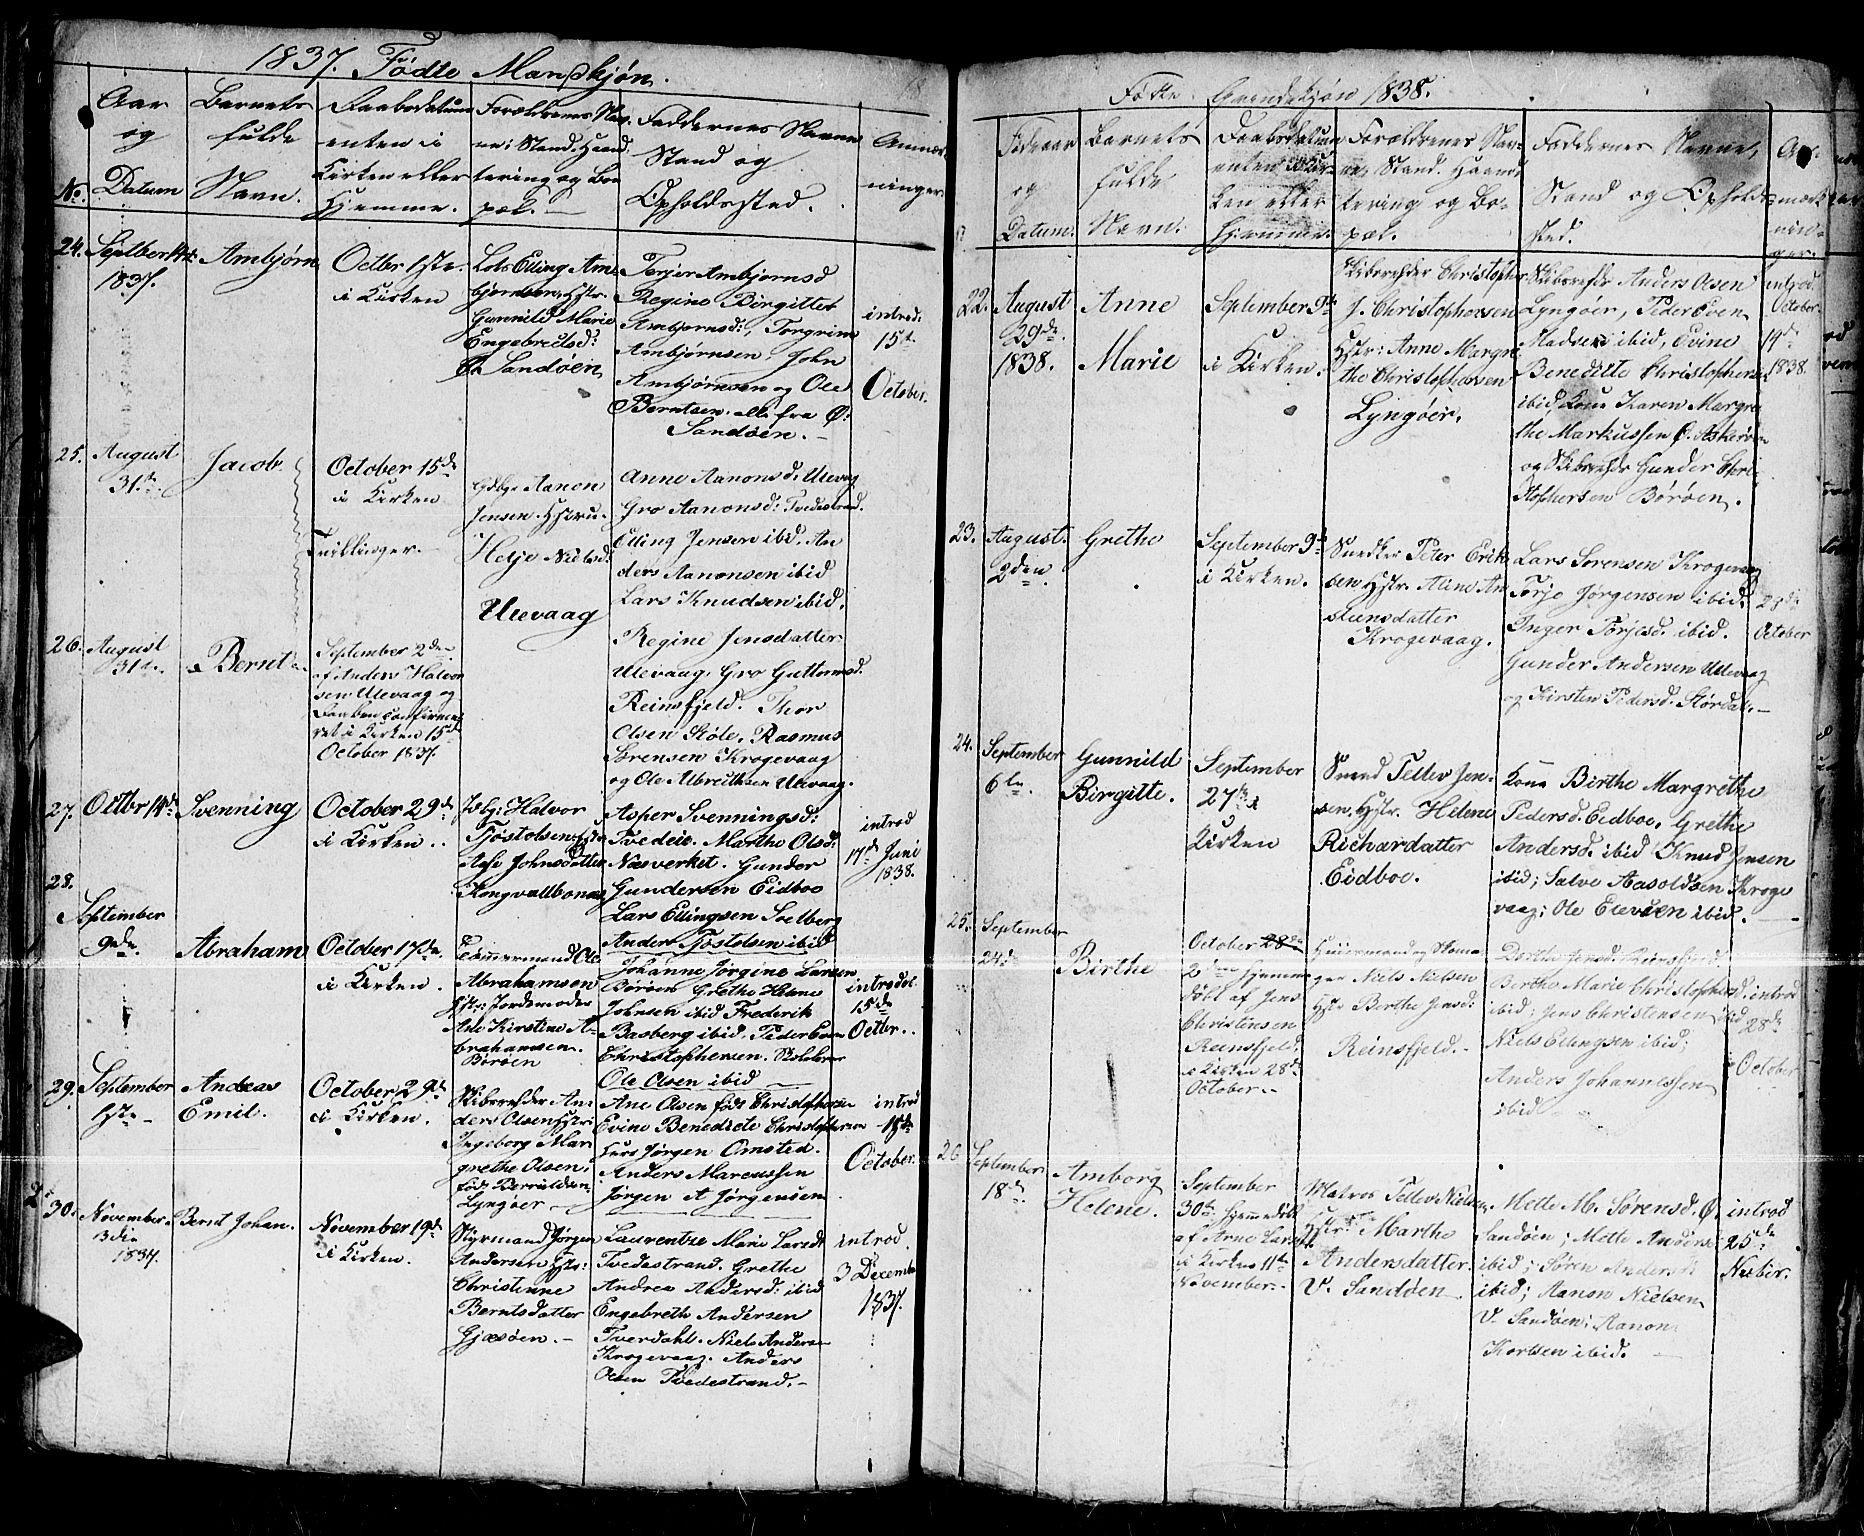 1837. Födte Mandkjøn.
No.
Aar
og
Datum
Barnets
fulde
Navn.
Daabsdatum
enten i
Kirken eller
Hjemme.
Forældrenes Nav-
ne, Stand, Haand
tering og Bo
pæl.
Faddernes Navne
Stand og
Opholdssted.
Anmær
ninger.
24.
Septbr 14de
1837.
Ambjørn
Octbr 1ste
i Kirken
Lots Elling Am
bjørnsen, Hstr.
Gunnild Marie
Engebretsd:
Ø. Sandøen
Terjer Ambjørnsd
Regine Birgitte
Ambjørnsd:, Torgrim
Ambjørnsen, John
Ambjørnsen og Ole
Berntsen. alle fra Ø:
Sandøen.
introd:
15de
October.
25.
August
31te
Jacob
October 15de
i Kirken
Tvillinger.
Gdbr. Aanon
Jensen. Hstru.
Helje Nielsd:
Ulevaag
Anne Aanonsd: Ulevaag
Gro Aanonsd: Tvedestrand.
Elling Jensen ibid. An
ders Aanonsen ibid
Lars Knudsen ibid.
26.
August
31te
Bernt
September 2den
af Anders Halvor
sen Ulevaag og
Daaben confirme
ret i Kirken 15de
October 1837.
Regine Jensdatter
Ulevaag, Gro Guttormsd.
Reinsfjeld. Thor
Olsen Støle, Rasmus
Sørensen Krogevaag
og Ole Albretsen Ulevaag.
27.
Octbr 14de
Svenning
October 29de
i Kirken
Halvor
Tjøstolsen, Hstr
Aase Johnsdatter
Kongvaldbonæs
Asper Svenningsd:
Tvedeie. Marthe Olsd:
Næsverket. Gunder
Gundersen Eidboe
Lars Ellingsen Solberg
Anders Tjøstolsen ibid
introd
17de Juni
1838.
28.
September
9nde
Abraham
October 17de
i Kirken.
Tømmermand Ole
Abrahamsen
Hstr: Jordemoder
Ane Kirstine A-
brahamsen.
Børøen
Johanne Jørgine Larsen
Børøen Grethe Helene
Johnsen ibid Frederik
Basberg ibid. Peder Even
Christophersen.
Ole Olsen ibid
introd.
15de
Octbr.
29.
September
1ste
Andreas
Emil.
October 29de
i Kirken.
Skibsreder An
ders Olsen Hstr:
Ingeborg Mar
grethe Olsen,
født
Lyngøer
Ane Olsen født Christophersen
Evine Benedicte Christophersen
Jørgen Omsted.
Anders Marcussen
Jørgen A Jørgensen
introd
15de
October.
30.
November
13die
1837.
Bernt Johan.
November 19de
i Kirken.
Styrmand Jørgen
Andersen Hstr:
Christenne
Berntsdatter
Gjæsøen.
Laurentze Marie Larsd:
Tvedestrand. Grethe
Andrea Andersd: ibid
Engebreth Andersen
Tverdahl. Niels Anders
Krogevaag. Anders
Olsen Tvedestrand.
introd.
3 Decembr
1837.
Födte Qvindekjøn 1838.
Fødeaar
og
Datum.
Barnets
fulde
Navn.
Daabsdatum
enten i Kir-
ken eller
Hjemme.
Forældrenes Nav-
ne, Stand, Haand
tering og Bo-
pæl.
Faddernes Navne,
Stand og Opholds
sted.
An-
mærk
nin-
ger.
22.
August
29de
1838.
Anne
Marie
September 9de
i Kirken.
Skibsreder Christopher
J. Christophersen
Hstr: Anne Margre
the Christophersen
Lyngøer.
Skibsreder Anders Olsen
Lyngøer, Peder Even
Madsen ibid, Evine
Beneditte Christophersen
ibid, Kone Karen Margre
the Markussen Ø. Askerøen
og Skibsreder Gunder Chri
stophersen Børøen.
introd.
October
19de
1838.
23.
August.
2den
Grethe
September 9de
i Kirken.
Snedker Peter Erik
sen Hstr. Aline An
stensdatter
Krogevaag.
Lars Sørensen Krogevaag
Torje Jørgensen ibid.
Inger Torjesd. ibid.
Gunder Andersen Ulevaag
og Kirsten Pedersd.
28de
October
24.
September
6te
Gunnild
Birgitte.
September
27de i
Kirken
Smed Tellev Jen-
sen, Hstr. Helene
Richardatter
Eidboe.
Kone Birthe Margrethe
Pedersd. Eidboe, Grethe
Andersd. ibid Knud Jensen
ibid; Salve Aasoldsen Kroge
vaag; Ole Elevsen ibid.
25.
September
24de
Birthe
October 28de
2den hjemme
døbt af Jens
Christensen
Reinsfjeld.
i Kirken 28de
October.
Huusmand og
Niels Nielsen
Hstr Berthe Jensd:
Reinsfjeld.
Dorthe Jensd. Reinsfjeld
Berthe Marie Christophersd.
ibid; Jens Christensen ibid
Niels Ellingsen ibid;
Anders Johannessen
ibid
introd
28de
October
26
September
18de
Amborg
Helene.
September
30te hjemmedøbt
af Arne Larsen
i Kirken 11te
November.
Matros Tellev Nielsen
Hstr: Marthe
Andersdatter
V. Sandøen
Mette M. Sørensd. Ø.
Sandøen; Mette Andersd
ibid; Søren Andersd
ibid; Aanon Nielsen
V. Sandøen; Aanon
Korlsen ibid.
introd
25de
Nvbr.